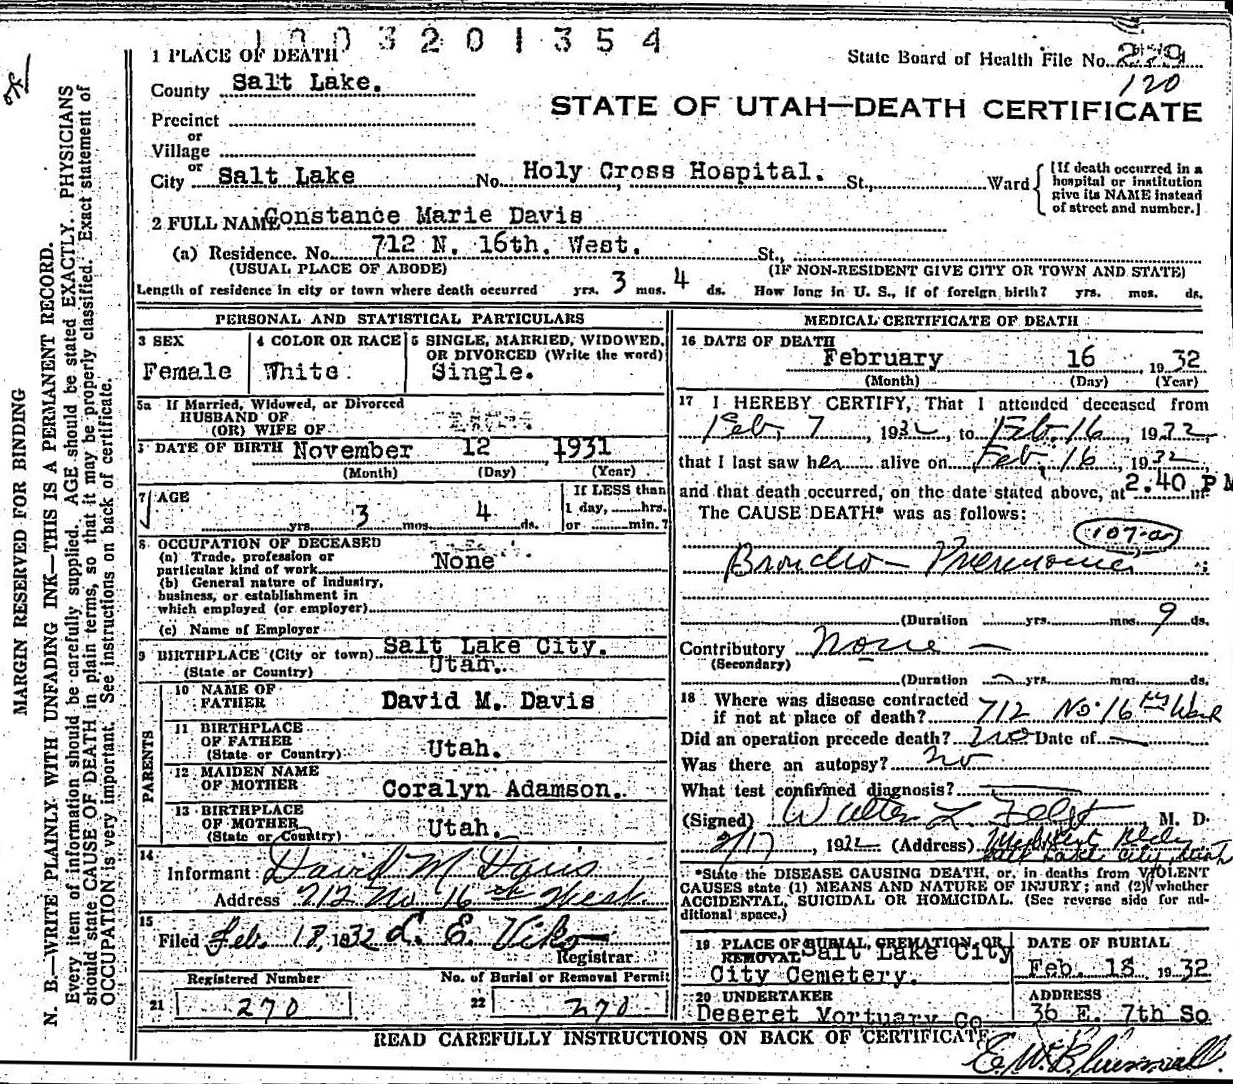 1003201354
1 PLACE OF DEATH
State Board of Health File No. 279
120
County Salt Lake.
STATE OF UTAH—DEATH CERTIFICATE
Precinct
or
Village
or
City Salt Lake No. Holy Cross Hospital. St., Ward
[If death occurred in a hospital or institution give its NAME instead of street and number.]
2 FULL NAME Constance Marie Davis
(a) Residence. No. 712 N. 16th. West. St.,
(USUAL PLACE OF ABODE) (IF NON-RESIDENT GIVE CITY OR TOWN AND STATE)
Length of residence in city or town where death occurred yrs. 3 mos. 4 ds. How long in U. S., if of foreign birth? yrs. mos. ds.
PERSONAL AND STATISTICAL PARTICULARS
3 SEX
Female
4 COLOR OR RACE
White.
5 SINGLE, MARRIED, WIDOWED, OR DIVORCED (Write the word)
Single.
5a If Married, Widowed, or Divorced
HUSBAND OF
(OR) WIFE OF
DATE OF BIRTH November 12 1931
(Month) (Day) (Year)
7 AGE
yrs. 3 mos. 4 ds.
If LESS than
1 day, hrs.
or min.?
8 OCCUPATION OF DECEASED
(a) Trade, profession or
particular kind of work None
(b) General nature of industry,
business, or establishment in
which employed (or employer)
(c) Name of Employer
9 BIRTHPLACE (City or town) Salt Lake City.
(State or Country) Utah.
PARENTS
10 NAME OF
FATHER David M. Davis
11 BIRTHPLACE
OF FATHER
(State or Country) Utah.
12 MAIDEN NAME
OF MOTHER Coralyn Adamson.
13 BIRTHPLACE
OF MOTHER
(State or Country) Utah.
14
Informant David M Davis
Address 712 No 16th West.
15
Filed Feb. 18, 1932 L. E. Viko
Registrar
Registered Number
21 270
No. of Burial or Removal Permit
22 270
MEDICAL CERTIFICATE OF DEATH
16 DATE OF DEATH
February 16, 1932
(Month) (Day) (Year)
17 I HEREBY CERTIFY, That I attended deceased from
Feb, 7, 1932, to Feb. 16, 1932,
that I last saw her alive on Feb. 16, 1932,
and that death occurred, on the date stated above, at 2.40 P M m
The CAUSE DEATH* was as follows:
107-a
Broncho- Pneumonia
(Duration yrs. mos. 9 ds.
Contributory None —
(Secondary)
(Duration yrs. mos. ds.
18 Where was disease contracted
if not at place of death? 712 No. 16th West
Did an operation precede death? no Date of —
Was there an autopsy? no
What test confirmed diagnosis? —
(Signed) Walter L. M. D.
2/17, 1932 (Address)
Salt Lake City, Utah
*State the DISEASE CAUSING DEATH, or, in deaths from VIOLENT
CAUSES state (1) MEANS AND NATURE OF INJURY; and (2) whether
ACCIDENTAL, SUICIDAL OR HOMICIDAL. (See reverse side for ad-
ditional space.)
19 PLACE OF BURIAL, CREMATION, OR
REMOVAL Salt Lake City
City Cemetery.
DATE OF BURIAL
Feb. 18 1932
20 UNDERTAKER
Deseret Mortuary Co
ADDRESS
36 E. 7th So
READ CAREFULLY INSTRUCTIONS ON BACK OF CERTIFICATE
MARGIN RESERVED FOR BINDING
N. B.—WRITE PLAINLY WITH UNFADING INK—THIS IS A PERMANENT RECORD.
Every item of information should be carefully supplied. AGE should be stated EXACTLY. PHYSICIANS
should state CAUSE OF DEATH in plain terms, so that it may be properly classified. Exact statement of
OCCUPATION is very important. See instructions on back of certificate.